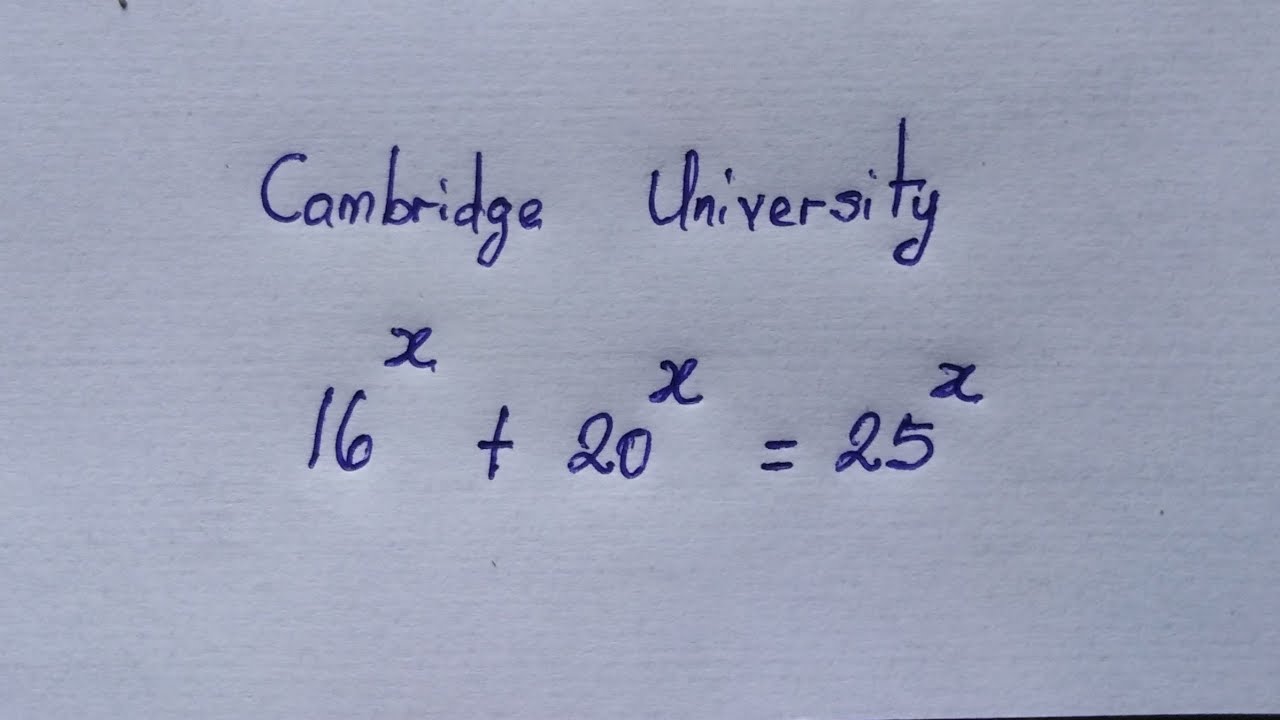 Cambridge University
16^x + 20^x = 25^x